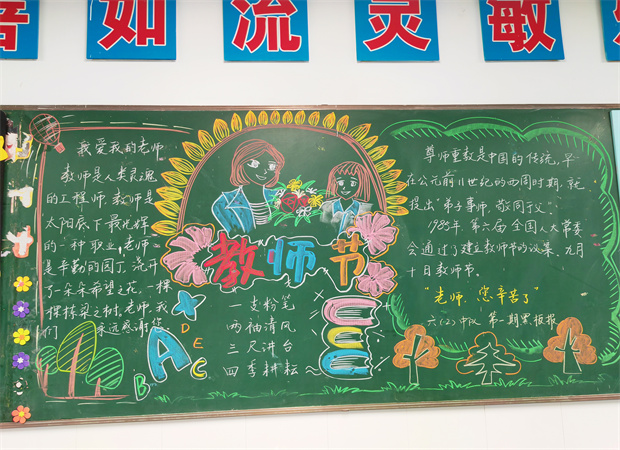 如流 灵敏
我爱我的老师
教师是人类灵魂
的工程师，教师是
太阳底下最光辉
的一种职业，老师
是辛勤的园丁，浇开
了一朵朵希望之花，一棵
棵栋梁之树，老师，我
们永远感谢您
教师节
一支粉笔
两袖清风
三尺讲台
四季耕耘
A
B
C
D
E
C
尊师重教是中国的传统，早
在公元前11世纪的西周时期，就
提出“弟子事师，敬同于父”。
1985年，第六届全国人大常委
会通过了建立教师节的议案，九月
十日教师节。
“老师，您辛苦了”
六(2)中队 第一期黑板报